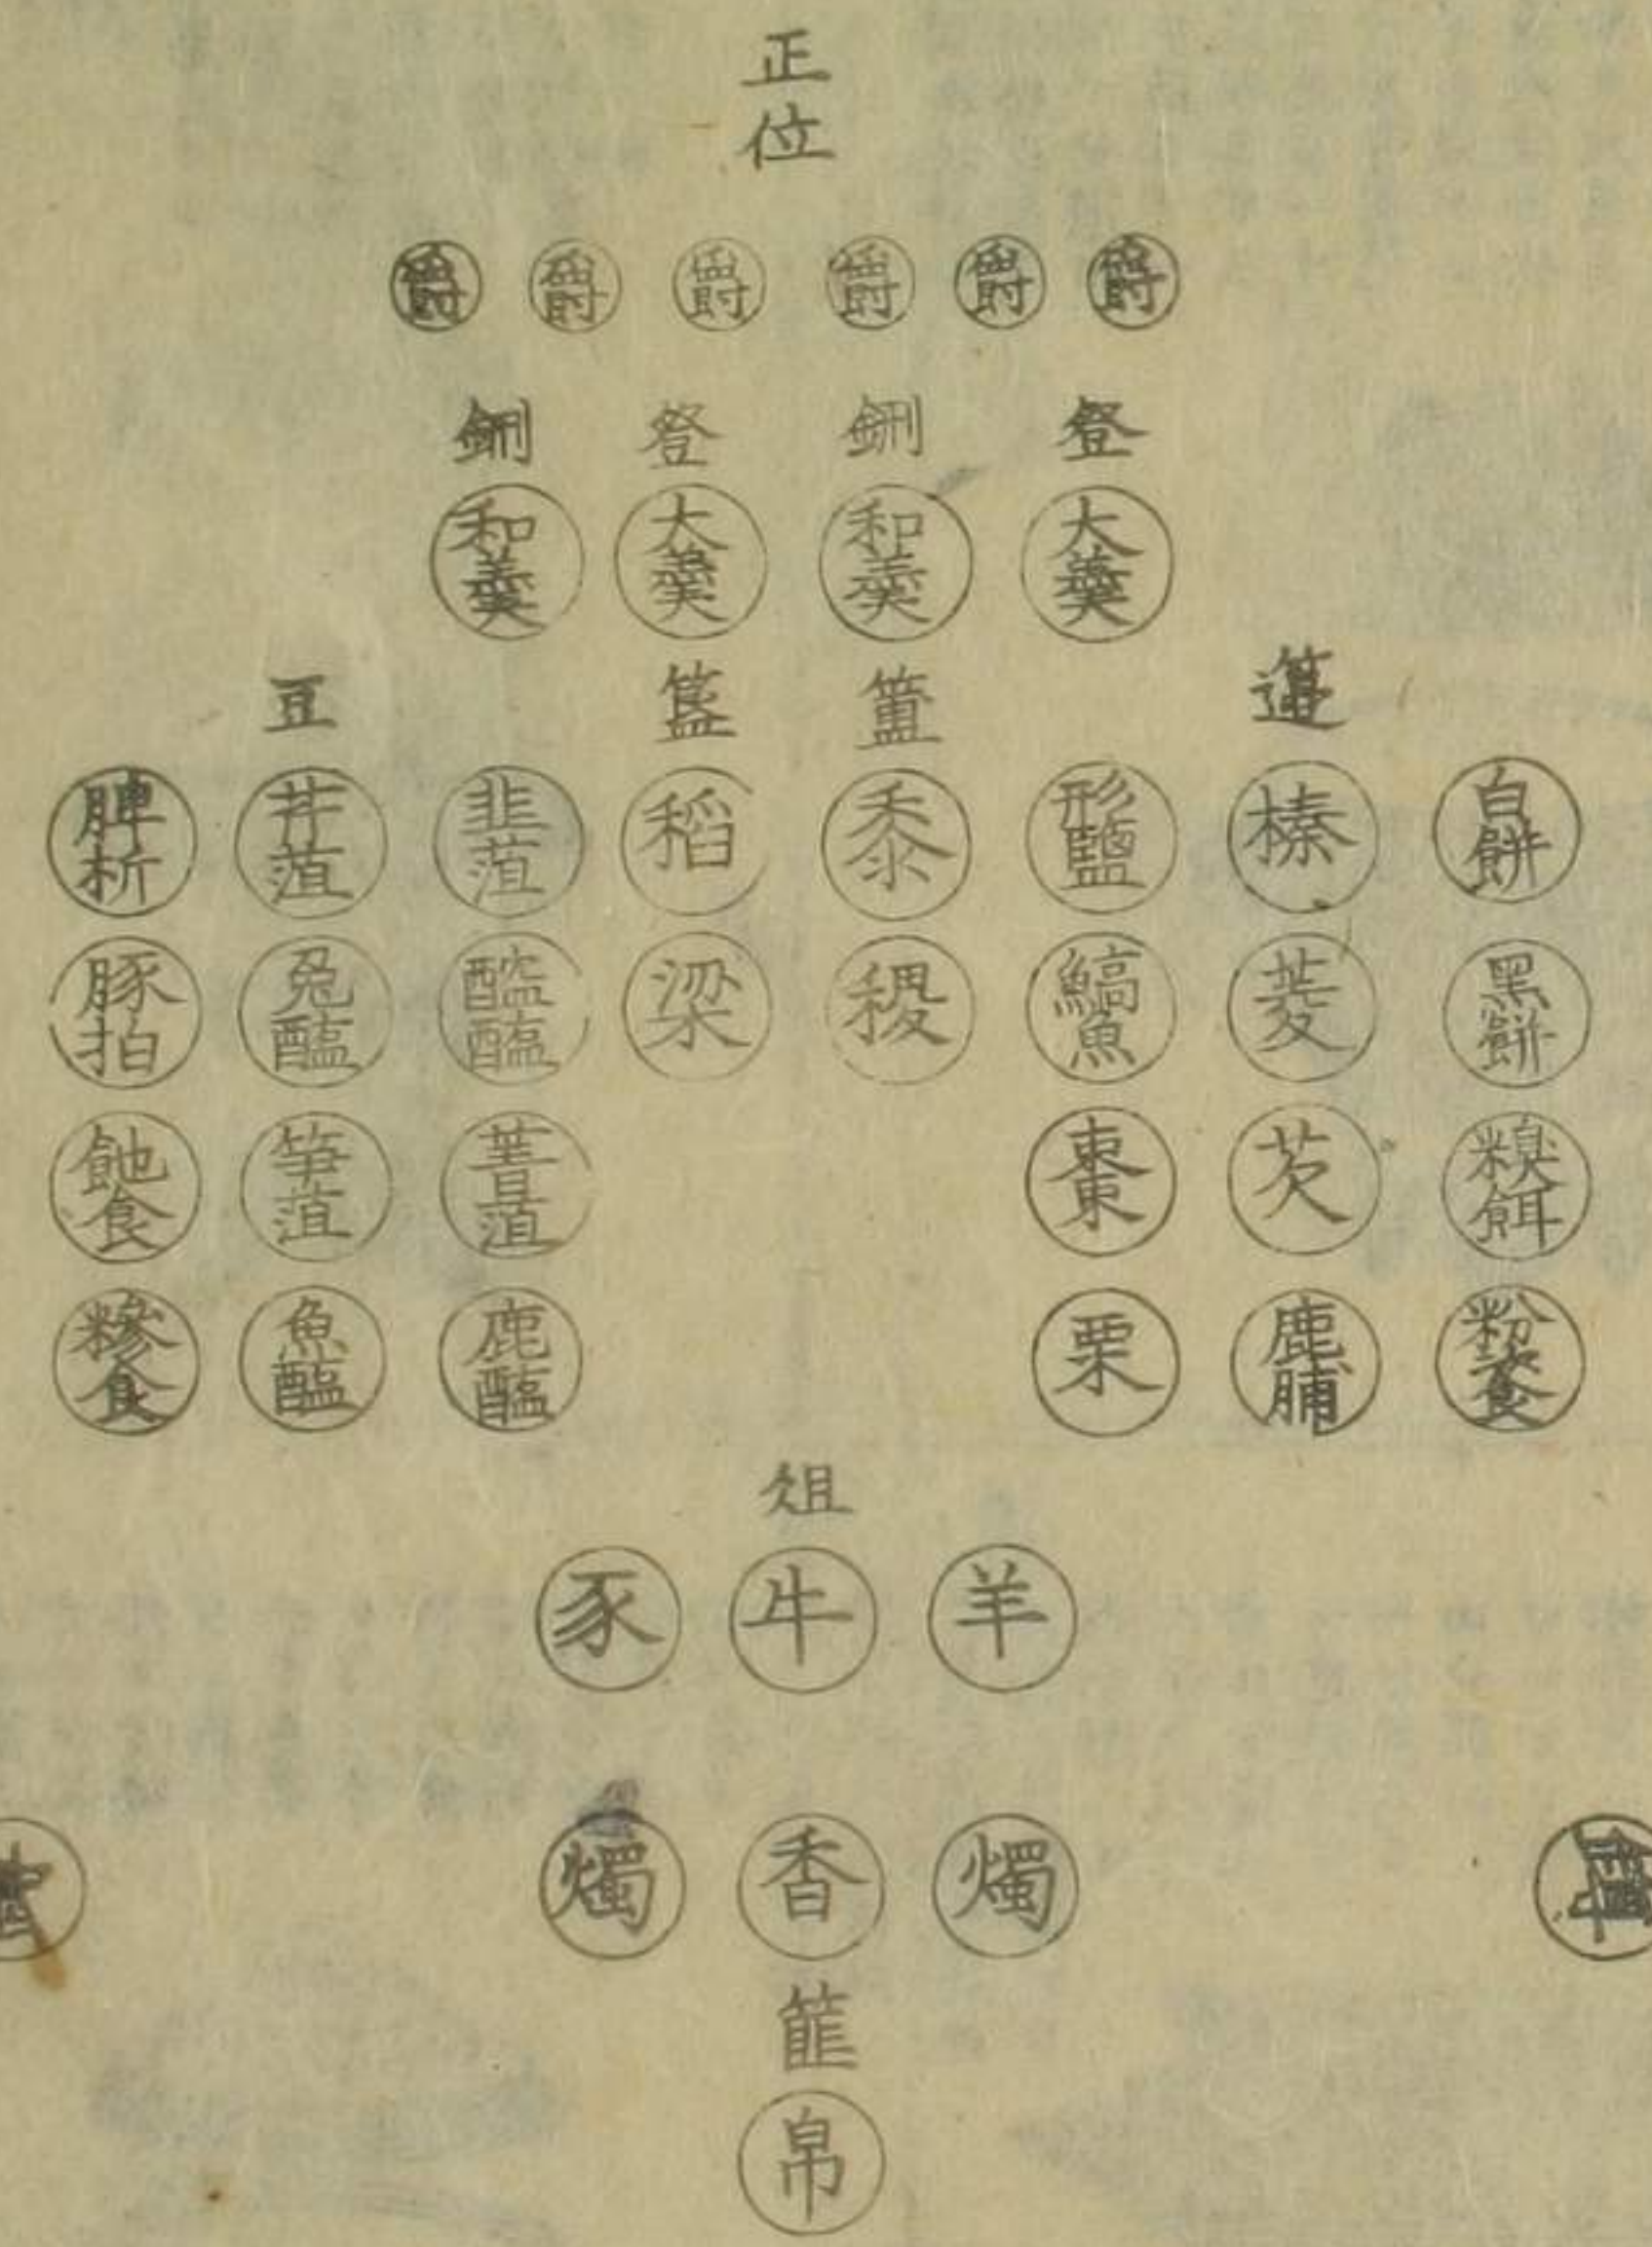 正位
爵 爵 爵 爵 爵 爵
鉶 登 鉶 登
和羹 大羹 和羹 大羹
豆 簋 簠 籩
脾析 芹菹 韭菹 稻 黍 形鹽 榛 白餅
豚拍 兔醢 醓醢 梁 稷 鱐魚 菱 黑餅
𩛆食 筍菹 菁菹 棗 芡 糗餌
糝食 魚醢 鹿醢 栗 鹿脯 粉餈
俎
豕 牛 羊
燭 香 燭
篚
帛